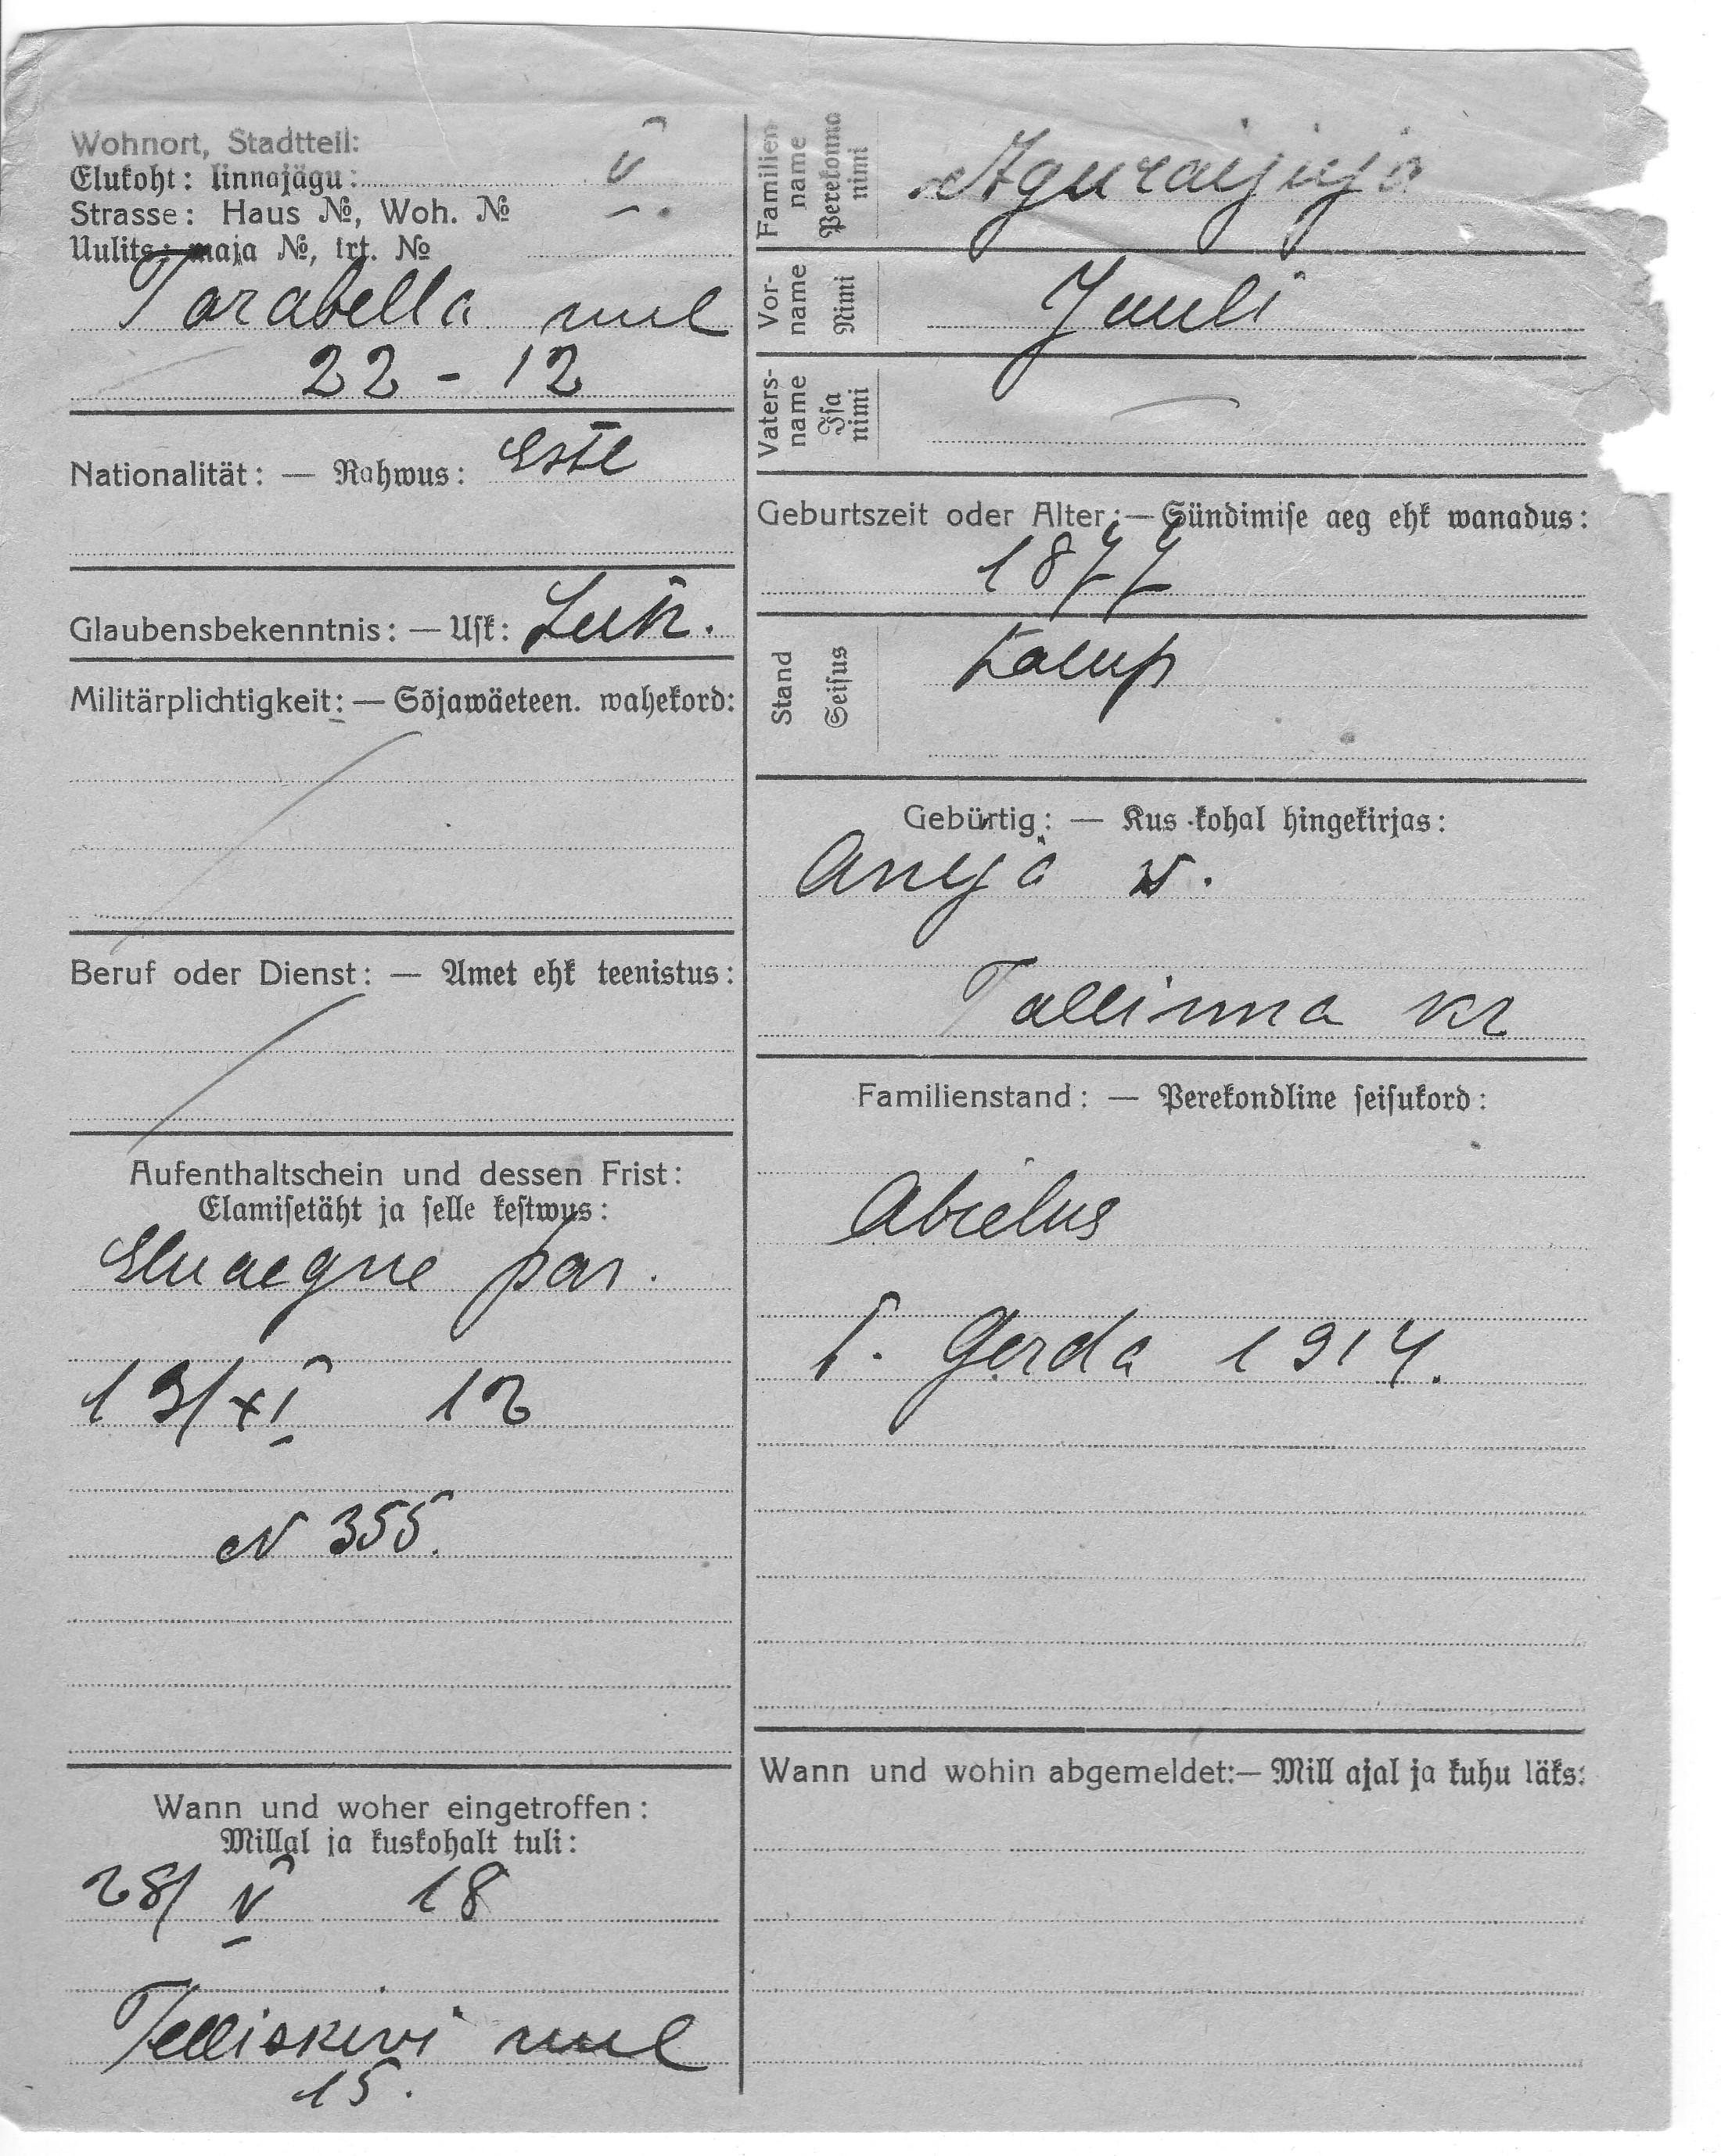 Wohnort, Stadtteil:
Elukoht: linnajägu: V
Strasse: Haus №, Woh. №
Uulits: maja №, krt. №
Parabella uul
22 - 12
Nationalität: — Rahwus: Este
Glaubensbekenntnis: — Usk: Lut.
Militärplichtigkeit: — Sõjawäeteen. wahekord:
Beruf oder Dienst: — Amet ehk teenistus:
Aufenthaltschein und dessen Frist:
Elamisetäht ja selle kestwus:
Eluaegne pas.
19/XI 12
N 355.
Wann und woher eingetroffen:
Millal ja kuskohalt tuli:
28/V 18
Telliskivi uul
15.
Familien-name
Perekonna nimi
Vor-name
Nimi
Juuli
Vaters-name
Isa nimi
Geburtszeit oder Alter: — Sündimise aeg ehk wanadus:
1877
Stand
Seisus
talup
Gebürtig: — Kus kohal hingekirjas:
Anija w.
Tallinna kr
Familienstand: — Perekondline seisukord:
Abielus
T. Gerda 1914.
Wann und wohin abgemeldet: — Mill ajal ja kuhu läks: